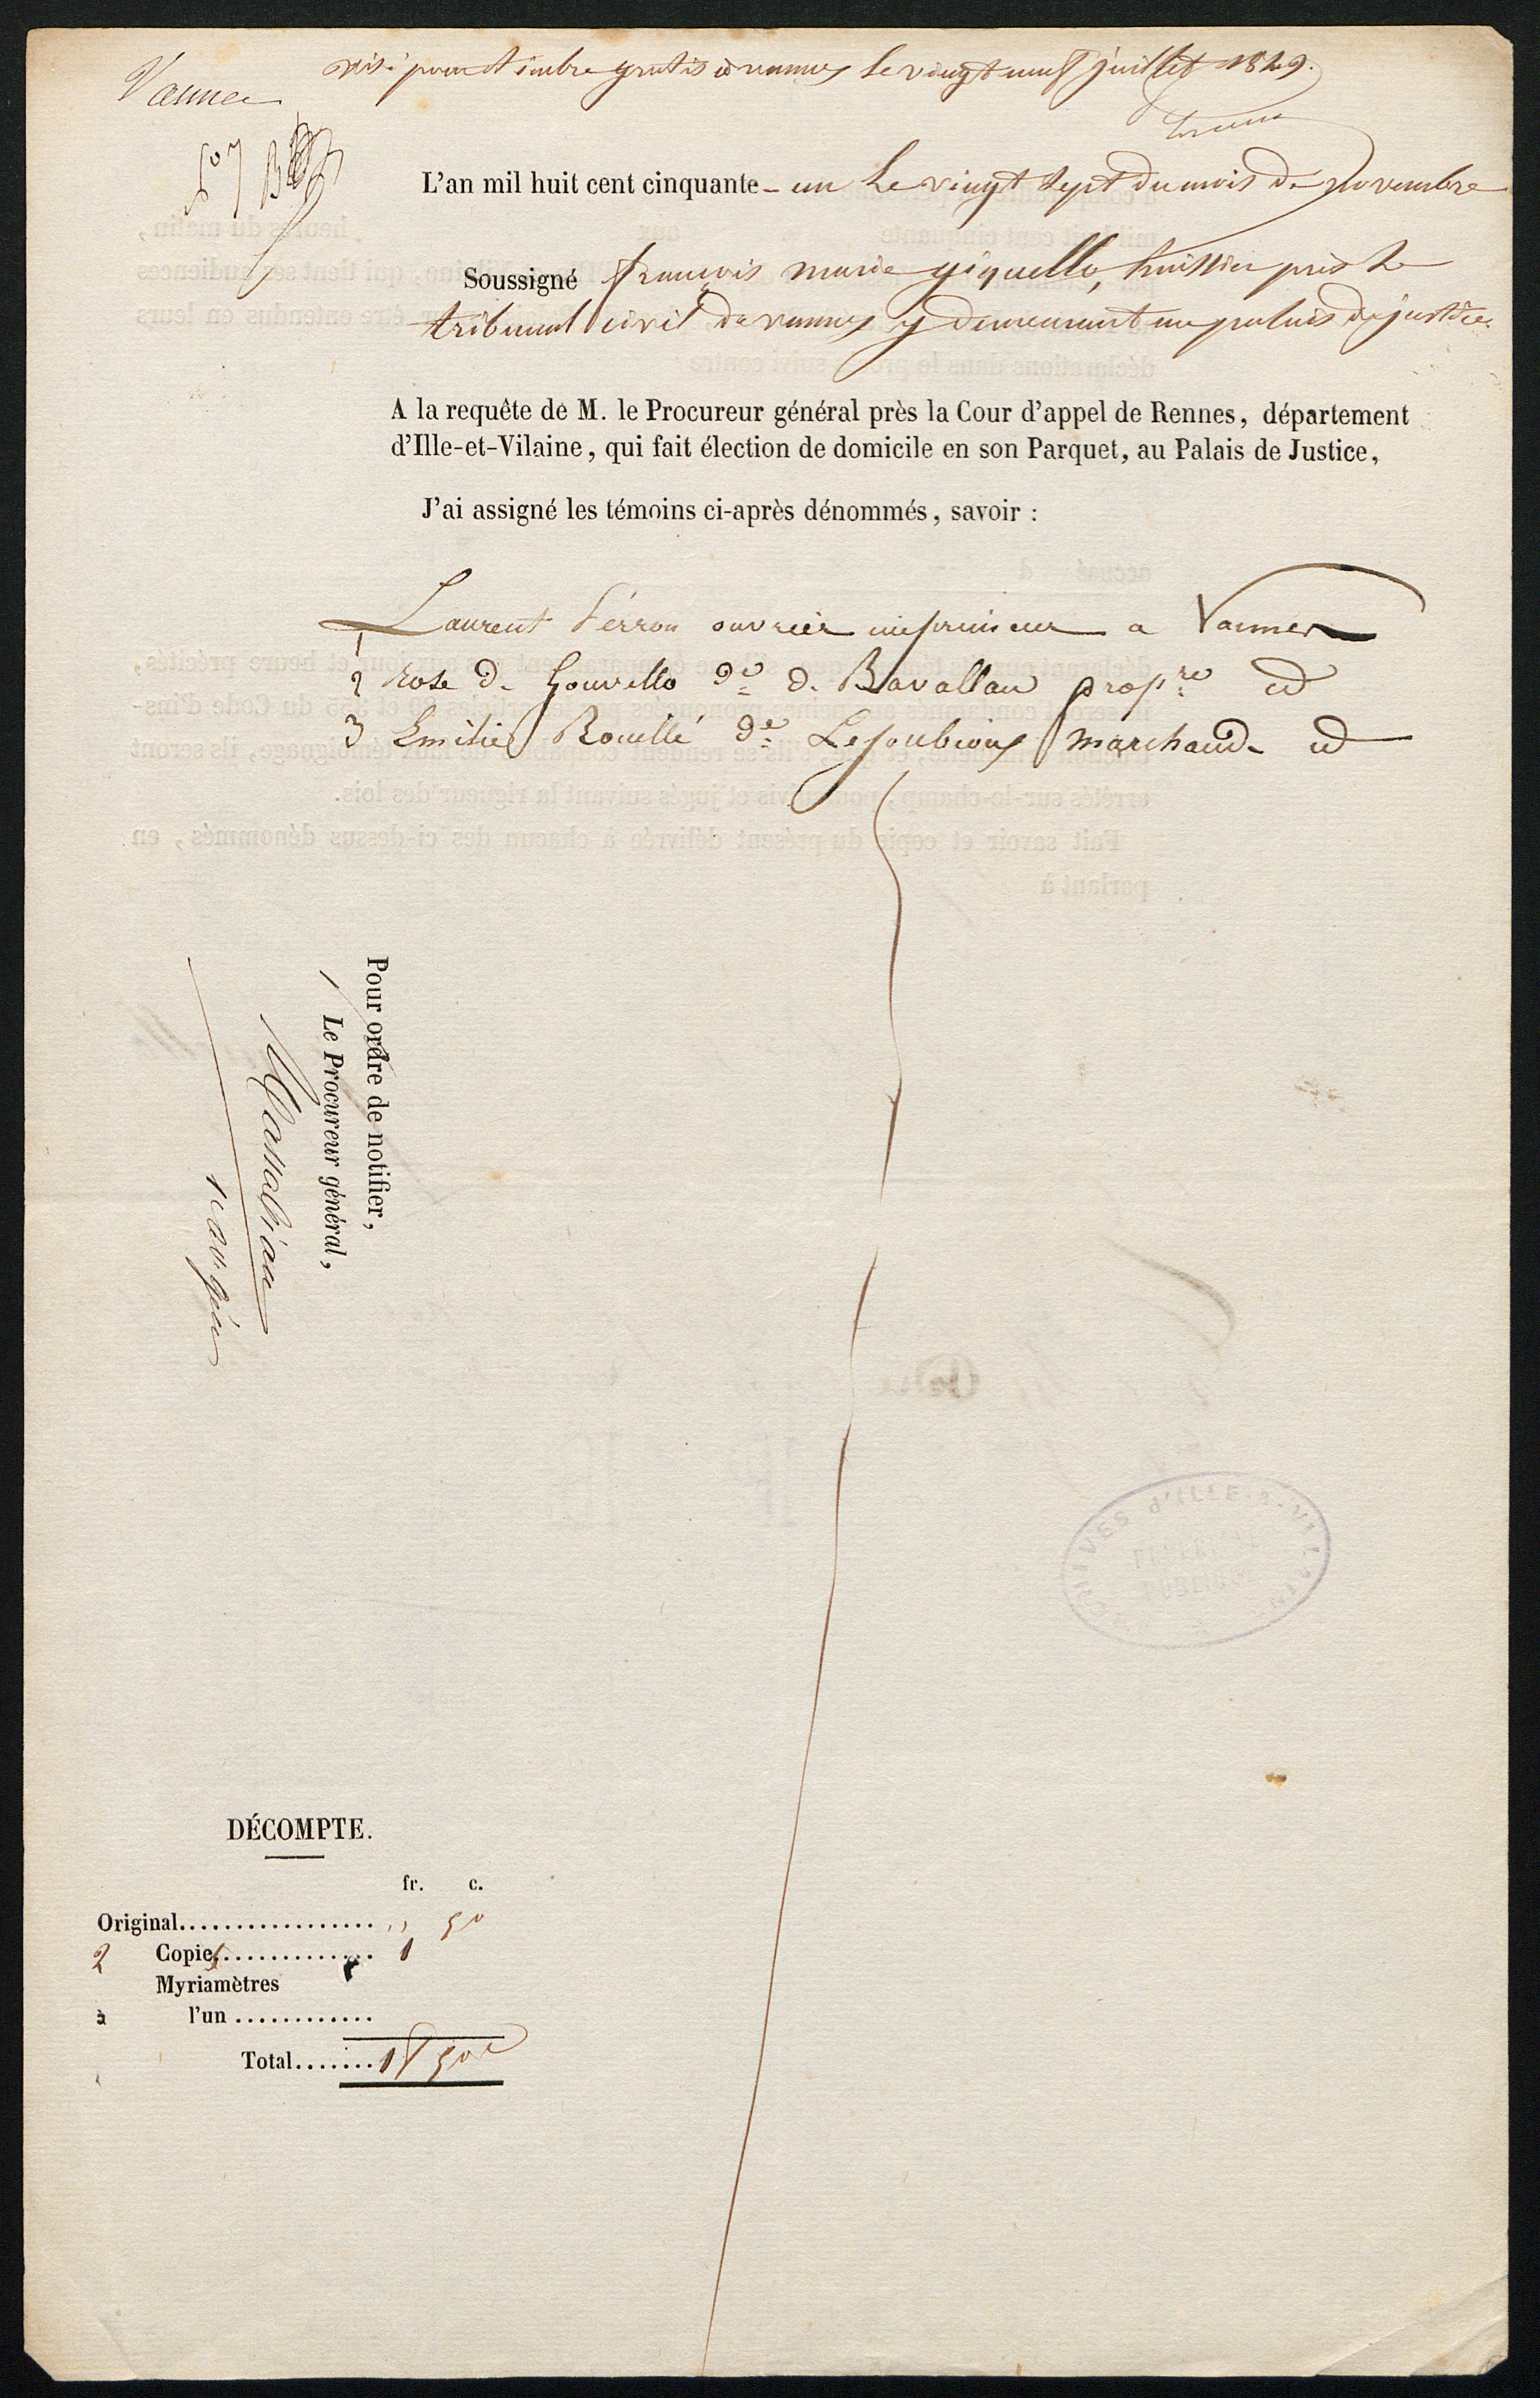 Vannes
visé pour timbre gratis à vannes le vingt neuf juillet 1849.
L'an mil huit cent cinquante - un Le vingt sept du mois de novembre
Soussigné françois marie giquello, huissier près le
tribunal civil de vannes y demeurant au palais de justice
A la requête de M. le Procureur général près la Cour d'appel de Rennes, département
d'Ille-et-Vilaine, qui fait élection de domicile en son Parquet, au Palais de Justice,
J'ai assigné les témoins ci-après dénommés, savoir :
1 Laurent Perron ouvrier imprimeur a Vannes
2 Rose de Gouvello De de Bavallan propre id
3 Emilie Rouillé De Lejoubioux marchande id
Pour ordre de notifier,
Le Procureur général,
1er av. gén
DÉCOMPTE.
fr. c.
Original................. " 50
2 Copies.............. 1
Myriamètres
à l'un ............
Total....... 1f 50c
ARCHIVES d'ILLE-&-VILAINE